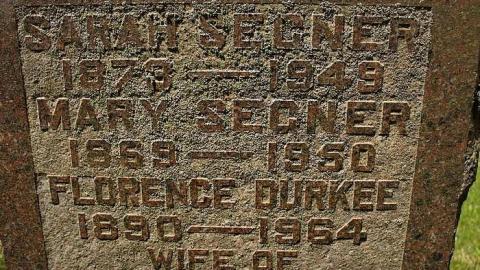 SARAH SEGNER
1873 — 1949
MARY SEGNER
1869 — 1950
FLORENCE DURKEE
1890 — 1964
WIFE OF